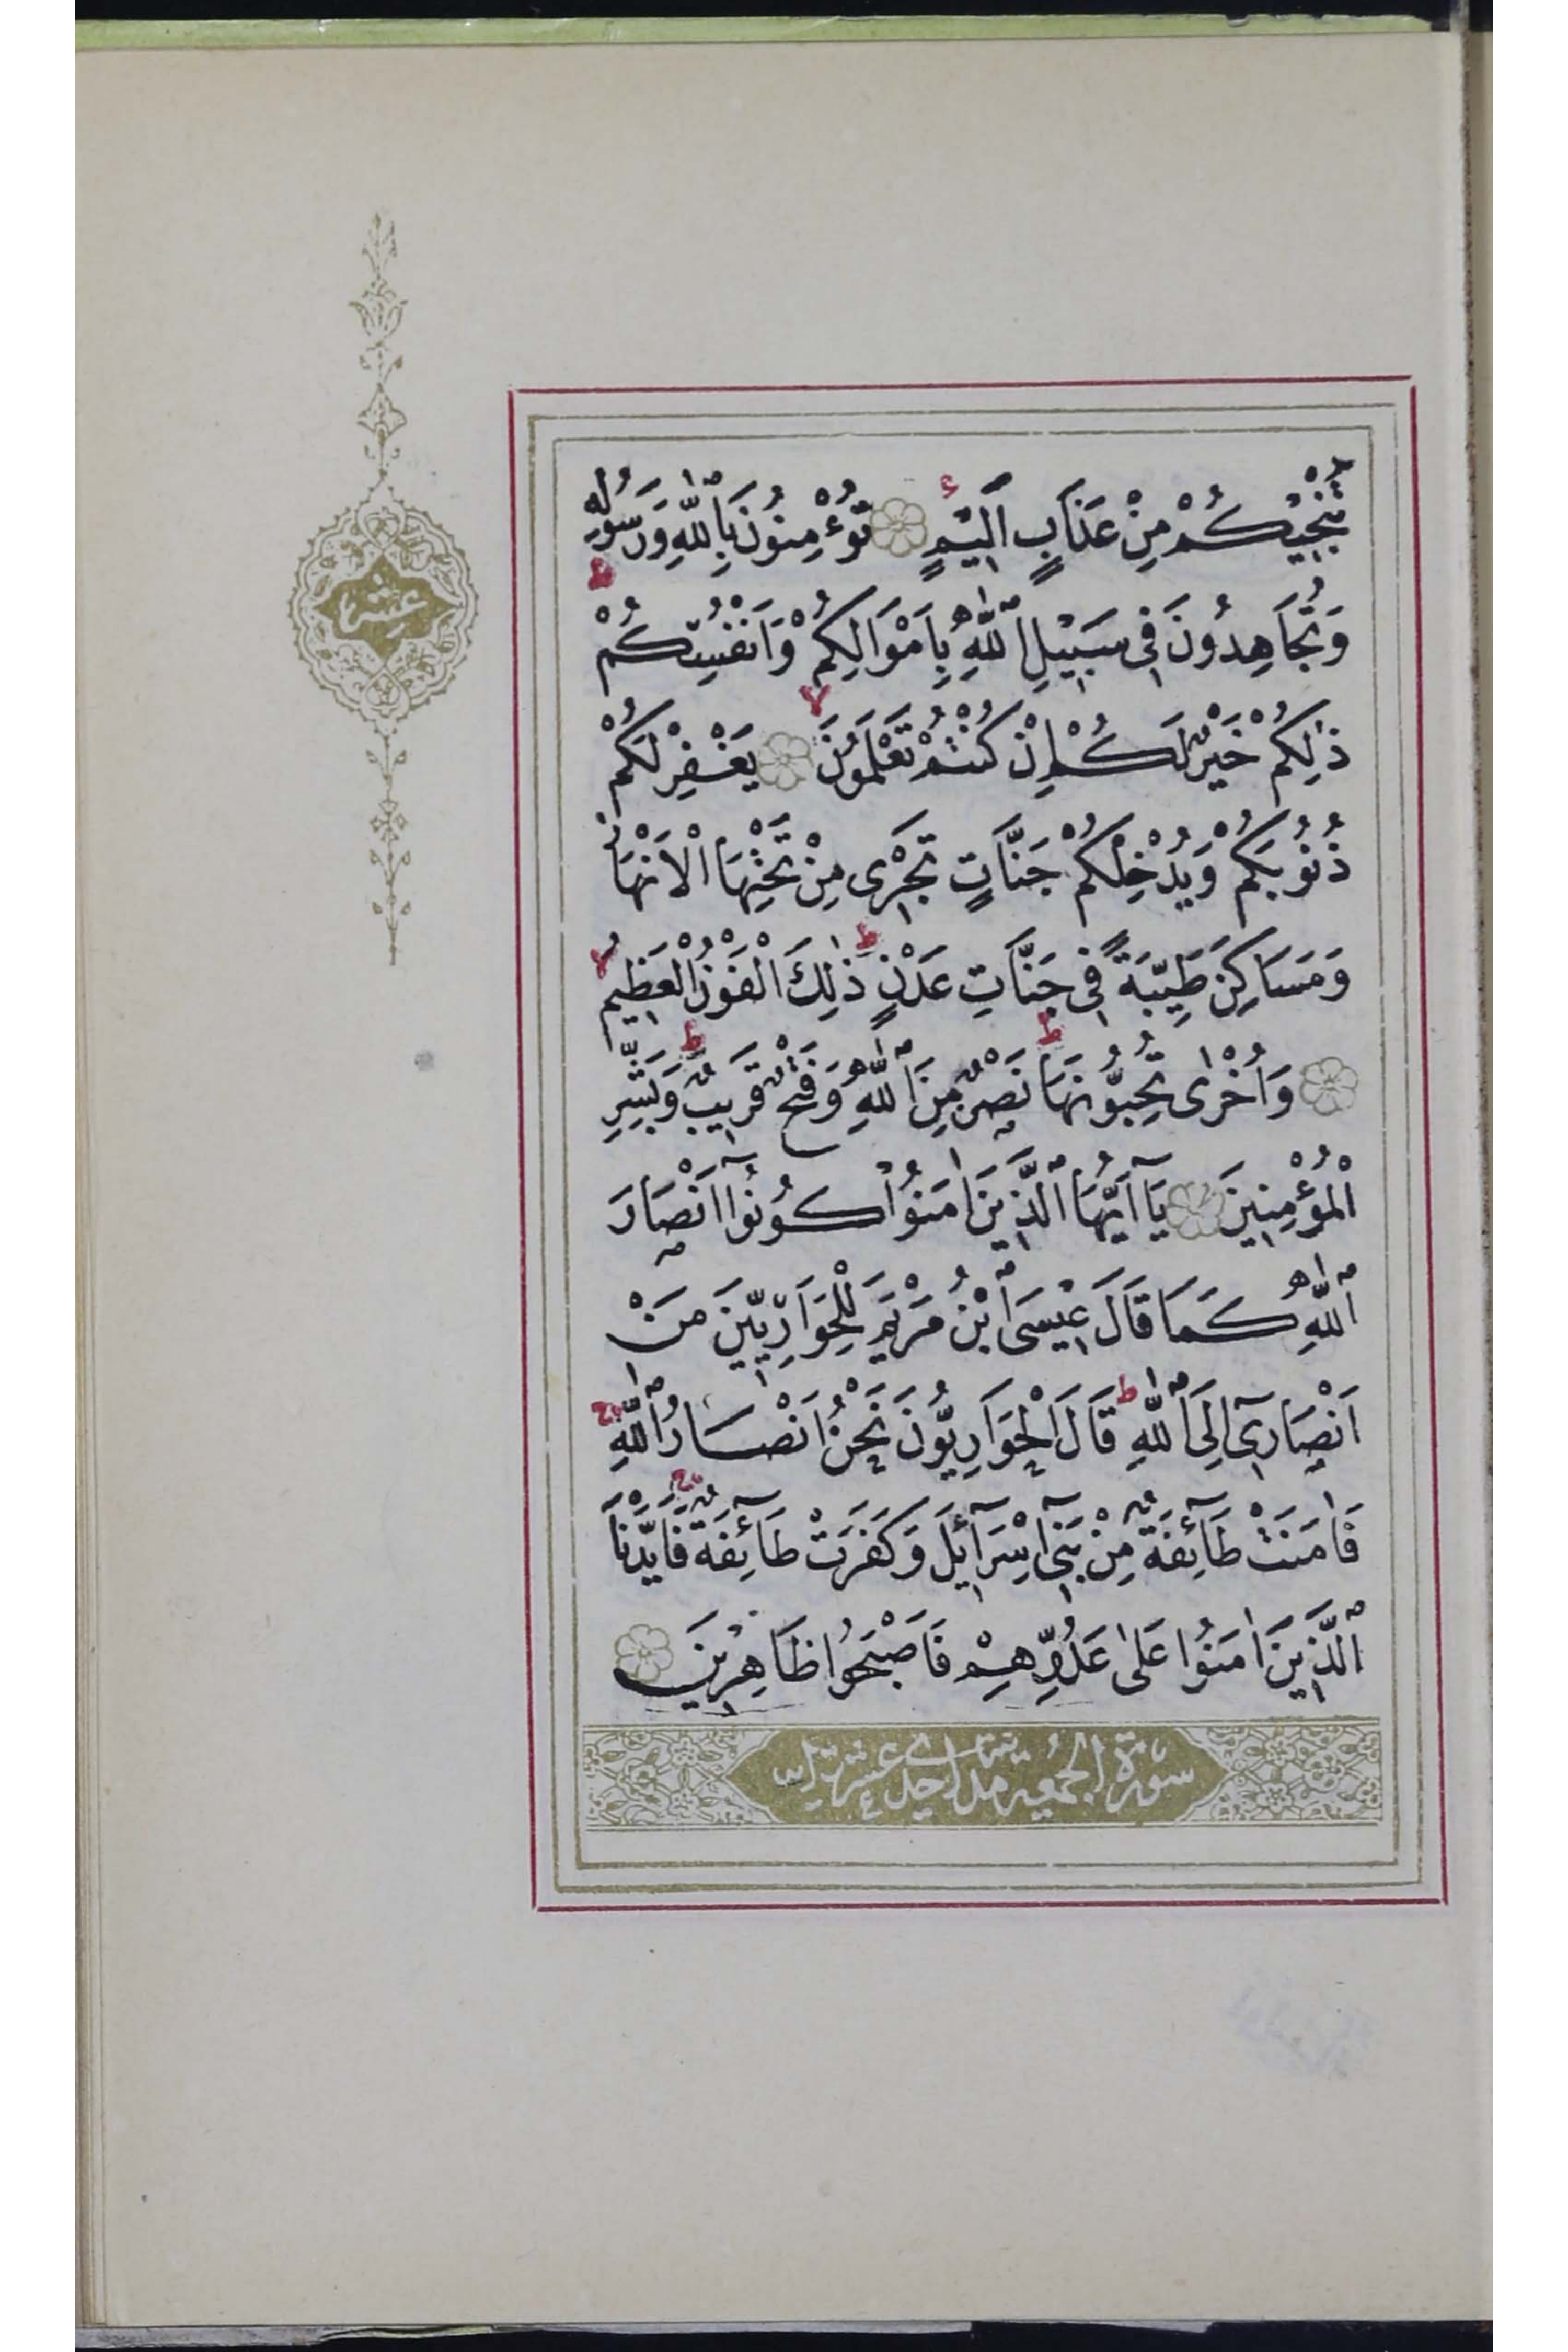 تُنْجِيكُمْ مِنْ عَذَابٍ اَلِيمٍ تُؤْمِنُونَ بِاللّٰهِ وَرَسُولِهِ
وَتُجَاهِدُونَ فِى سَبِيلِ اللّٰهِ بِاَمْوَالِكُمْ وَاَنْفُسِكُمْ
ذٰلِكُمْ خَيْرٌ لَكُمْ اِنْ كُنْتُمْ تَعْلَمُونَ يَغْفِرْ لَكُمْ
ذُنُوبَكُمْ وَيُدْخِلْكُمْ جَنَّاتٍ تَجْرِى مِنْ تَحْتِهَا الْاَنْهَارُ
وَمَسَاكِنَ طَيِّبَةً فِى جَنَّاتِ عَدْنٍ ذٰلِكَ الْفَوْزُ الْعَظِيمُ
وَاُخْرٰى تُحِبُّونَهَا نَصْرٌ مِنَ اللّٰهِ وَفَتْحٌ قَرِيبٌ وَبَشِّرِ
الْمُؤْمِنِينَ يَآ اَيُّهَا الَّذِينَ اٰمَنُوا كُونُوآ اَنْصَارَ
اللّٰهِ كَمَا قَالَ عِيسَى ابْنُ مَرْيَمَ لِلْحَوَارِيِّينَ مَنْ
اَنْصَارِىٓ اِلَى اللّٰهِ قَالَ الْحَوَارِيُّونَ نَحْنُ اَنْصَارُ اللّٰهِ
فَاٰمَنَتْ طَآئِفَةٌ مِنْ بَنِىٓ اِسْرَآئِلَ وَكَفَرَتْ طَآئِفَةٌ فَاَيَّدْنَا
الَّذِينَ اٰمَنُوا عَلٰى عَدُوِّهِمْ فَاَصْبَحُوا ظَاهِرِينَ
سورة الجمعة احدى عشرة
عشر